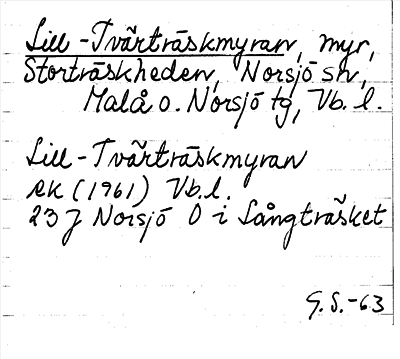 Lill-Tvärträskmyran, myr,
Storträskheden, Norsjö sn,
Malå o. Norsjö tg, Vb. l.
Lill-Tvärträskmyran
ek (1961) Vb.l.
23 J Norsjö O i Långträsket
G.S.-63